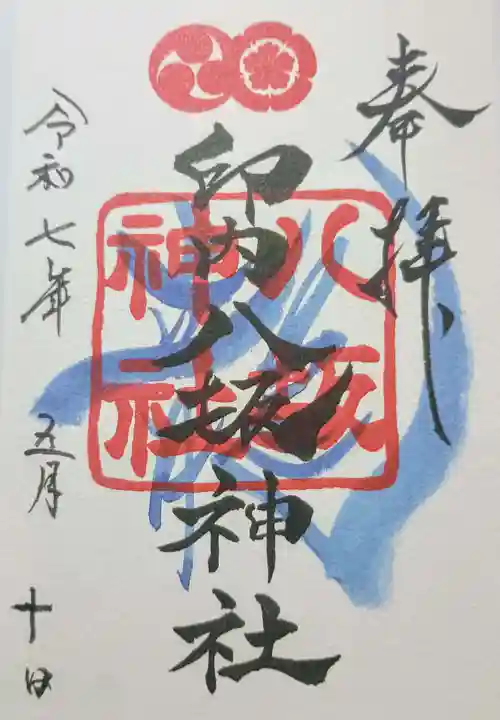 奉拝
印内八坂神社
八坂
神社
令和七年 五月 十日